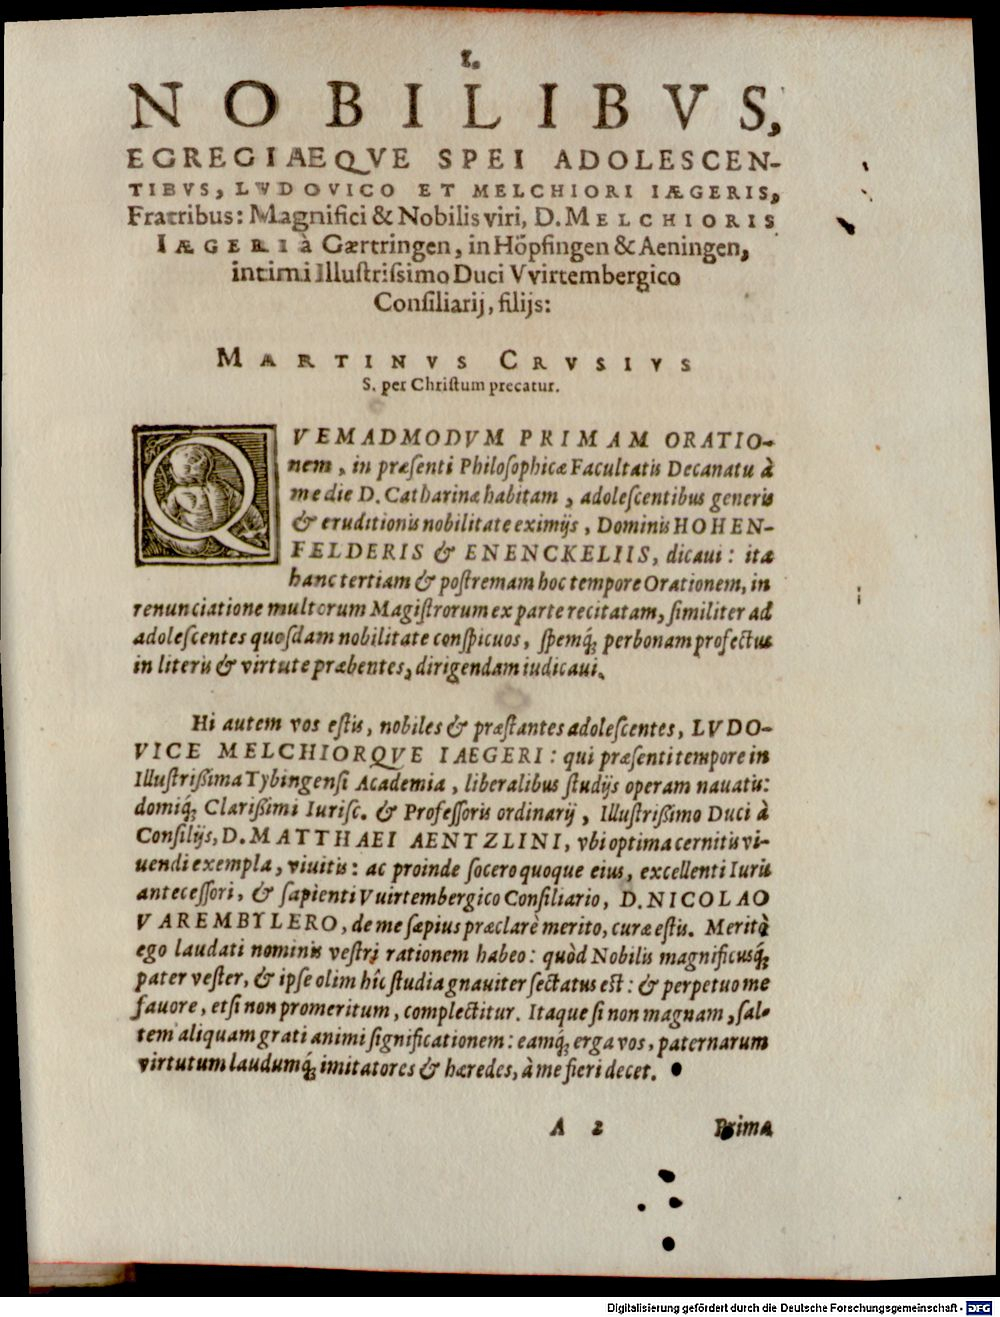 I.
NOBILIBVS,
EGREGIAEQVE SPEI ADOLESCEN-
TIBVS, LVDOVICO ET MELCHIORI IÆGERIS,
Fratribus: Magnifici & Nobilis viri, D. MELCHIORIS
IÆGERI à Gærtringen, in Höpfingen & Aeningen,
intimi Illustrissimo Duci Vvirtembergico
Consiliarij, filijs:
MARTINVS CRVSIVS
S. per Christum precatur.
QVEMADMODVM PRIMAM ORATIO-
nem, in præsenti Philosophicæ Facultatis Decanatu à
me die D. Catharinæ habitam, adolescentibus generis
& eruditionis nobilitate eximijs, Dominis HOHEN-
FELDERIS & ENENCKELIIS, dicaui: ita
hanc tertiam & postremam hoc tempore Orationem, in
renunciatione multorum Magistrorum ex parte recitatam, similiter ad
adolescentes quosdam nobilitate conspicuos, spemq́; perbonam profectus
in literis & virtute præbentes, dirigendam iudicaui.
Hi autem vos estis, nobiles & præstantes adolescentes, LVDO-
VICE MELCHIORQVE IAEGERI: qui præsenti tempore in
Illustrißima Tybingensi Academia, liberalibus studijs operam nauatis:
domiq́; Clarißimi Iurisc. & Professoris ordinarij, Illustrißimo Duci à
Consilijs, D. MATTHAEI AENTZLINI, vbi optima cernitis vi-
uendi exempla, viuitis: ac proinde socero quoque eius, excellenti Iuris
antecessori, & sapienti Vuirtembergico Consiliario, D. NICOLAO
VAREMBYLERO, de me sæpius præclarè merito, curæ estis. Meritò
ego laudati nominis vestri rationem habeo: quòd Nobilis magnificusq́;
pater vester, & ipse olim hîc studia gnauiter sectatus est: & perpetuo me
fauore, etsi non promeritum, complectitur. Itaque si non magnam, sal-
tem aliquam grati animi significationem: eamq́; erga vos, paternarum
virtutum laudumq́; imitatores & hæredes, à me fieri decet.
A 2 Prima
Digitalisierung gefördert durch die Deutsche Forschungsgemeinschaft - DFG